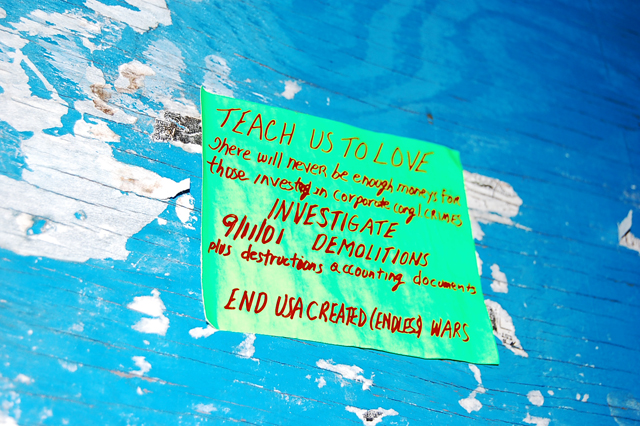 TEACH US TO LOVE
There will never be enough money$ for
those investing in corporate crimes
INVESTIGATE
9/11/01 DEMOLITIONS
plus destructions accounting documents
END USA CREATED (ENDLESS) WARS